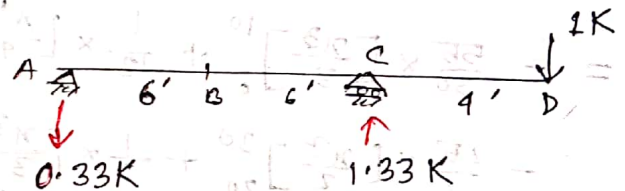 1K
A 6' B 6' C 4' D
0.33K 1.33K